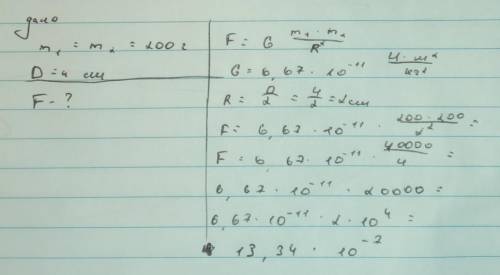 дано
m₁ = m₂ = 200 г
D = 4 см
F - ?
F = G m₁ · m₂ / R²
G = 6,67 · 10⁻¹¹ Н · м² / кг²
R = D/2 = 4/2 = 2 см
F = 6,67 · 10⁻¹¹ · 200 · 200 / 2² =
F = 6,67 · 10⁻¹¹ · 40000 / 4 =
6,67 · 10⁻¹¹ · 20000 =
6,67 · 10⁻¹¹ · 2 · 10⁴ =
13,34 · 10⁻⁷